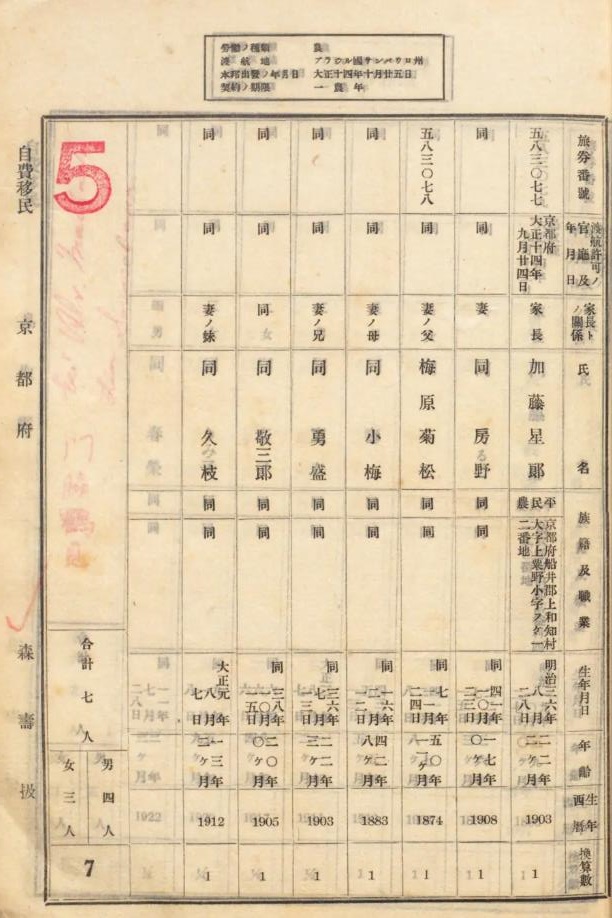 勞働ノ種類 農
渡航地 ブラジル國サンパウロ州
本邦出發ノ年月日 大正十四年十月廿五日
契約ノ期限 一農年
旅券番號
渡航許可ノ官廳及年月日
家長トノ關係
氏名
族籍及職業
生年月日
年齡
生年西曆
換算數
五八三〇七七
京都府
大正十四年
九月廿四日
家長
加藤星郎
平民農
京都府船井郡上和知村
大字上粟野小字フケ一
二番地
明治三六年
八月
二八日
二二年
1903
1
同
同
妻
同房野
同
同
同四一年
一〇月
二三日
一七年
〇ヶ月
1908
1
五八三〇七八
同
妻ノ父
梅原菊松
同
同
同七年
二四日
五〇年
一一ヶ月
1874
1
同
同
妻ノ母
同小梅
同
同
同一六年
二月
一二日
四二年
八ヶ月
1883
1
同
同
妻ノ兄
同勇盛
同
同
同三六年
七月
一三日
二二年
三ヶ月
1903
1
同
同
同
同敬三郎
同
同
同三八年
一〇月
一五日
二〇年
〇ヶ月
1905
1
同
同
妻ノ妹
同久枝
同
同
大正元年
八月
七日
一三年
二ヶ月
1912
1
5
合計七人
男四人
女三人
7
自費移民
京都府
森壽拔